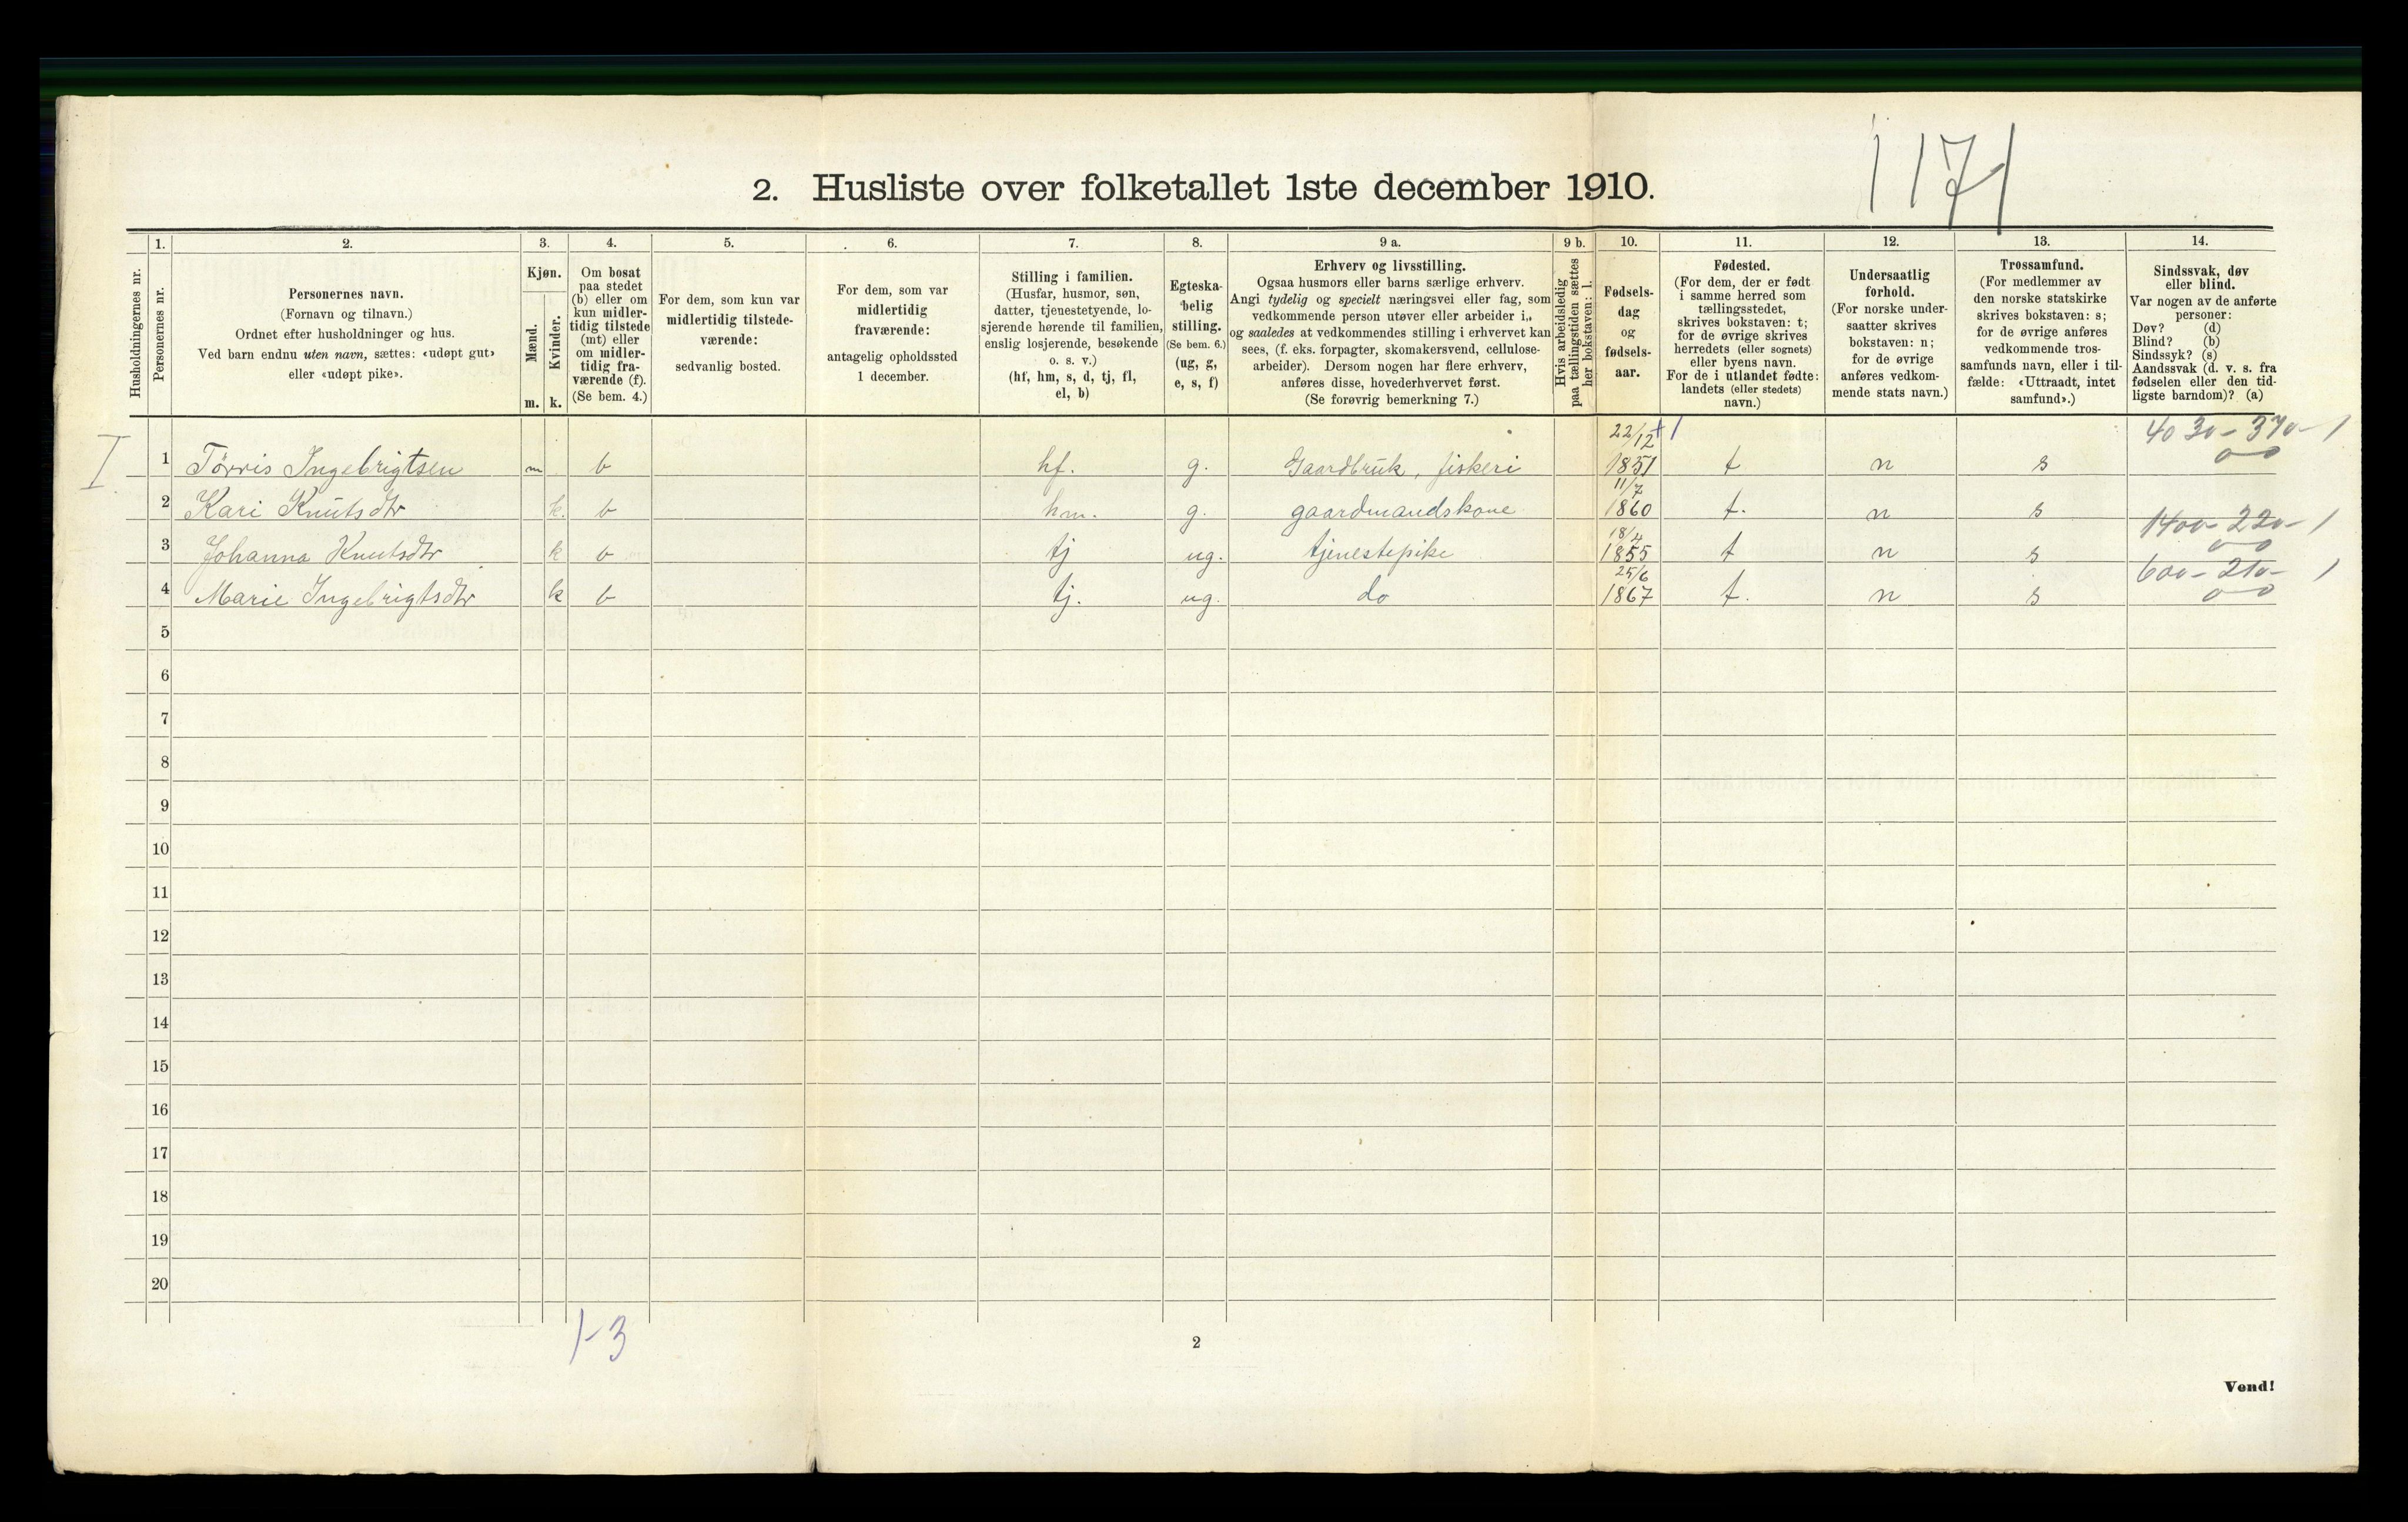 1171
2. Husliste over folketallet 1ste december 1910.
Husholdningernes nr.
1.
Personernes nr.
2.
Personernes navn.
(Fornavn og tilnavn.)
Ordnet efter husholdninger og hus.
Ved barn endnu uten navn, sættes: «udøpt gut»
eller «udøpt pike».
3.
Kjøn.
Mænd.
Kvinder.
m. k.
4.
Om bosat
paa stedet
(b) eller om
kun midler-
tidig tilstede
(mt) eller
om midler-
tidig fra-
værende (f).
(Se bem. 4.)
5.
For dem, som kun var
midlertidig tilstede-
værende:
sedvanlig bosted.
6.
For dem, som var
midlertidig
fraværende:
antagelig opholdssted
1 december.
7.
Stilling i familien.
(Husfar, husmor, søn,
datter, tjenestetyende, lo-
sjerende hørende til familien,
enslig losjerende, besøkende
o. s. v.)
(hf, hm, s, d, tj, fl,
el, b)
8.
Egteska-
belig
stilling.
(Se bem. 6.)
(ug, g,
e, s, f)
9 a.
Erhverv og livsstilling.
Ogsaa husmors eller barns særlige erhverv.
Angi tydelig og specielt næringsvei eller fag, som
vedkommende person utøver eller arbeider i,
og saaledes at vedkommendes stilling i erhvervet kan
sees, (f. eks. forpagter, skomakersvend, cellulose-
arbeider). Dersom nogen har flere erhverv,
anføres disse, hovederhvervet først.
(Se forøvrig bemerkning 7.)
9 b.
Hvis arbeidsledig
paa tællingstiden sættes
her bokstaven: l.
10.
Fødsels-
dag
og
fødsels-
aar.
11.
Fødested.
(For dem, der er født
i samme herred som
tællingsstedet,
skrives bokstaven: t;
for de øvrige skrives
herredets (eller sognets)
eller byens navn.
For de i utlandet fødte:
landets (eller stedets)
navn.)
12.
Undersaatlig
forhold.
(For norske under-
saatter skrives
bokstaven: n;
for de øvrige
anføres vedkom-
mende stats navn.)
13.
Trossamfund.
(For medlemmer av
den norske statskirke
skrives bokstaven: s;
for de øvrige anføres
vedkommende tros-
samfunds navn, eller i til-
fælde: «Uttraadt, intet
samfund».)
14.
Sindssvak, døv
eller blind.
Var nogen av de anførte
personer:
Døv? (d)
Blind? (b)
Sindssyk? (s)
Aandssvak (d. v. s. fra
fødselen eller den tid-
ligste barndom)? (a)
22/12 +1 4030 - 370 - 1
I 1 Tørris Ingebrigtsen m b hf. g. Gaardbruk, fiskeri 1851 t n s 0-0
11/7
2 Kari Knutsdtr k. b hm. g. gaardmandskone 1860 t. n s
18/4 1400 - 220 - 1
3 Johanna Knutsdtr k b tj ug. tjenestepike 1855 t n s 0-0
25/6 600 - 210 - 1
4 Marie Ingebrigtsdtr k b tj. ug. do 1867 t. n s 0-0
5
6
7
8
9
10
11
12
13
14
15
16
17
18
19
20
1-3
2
Vend!